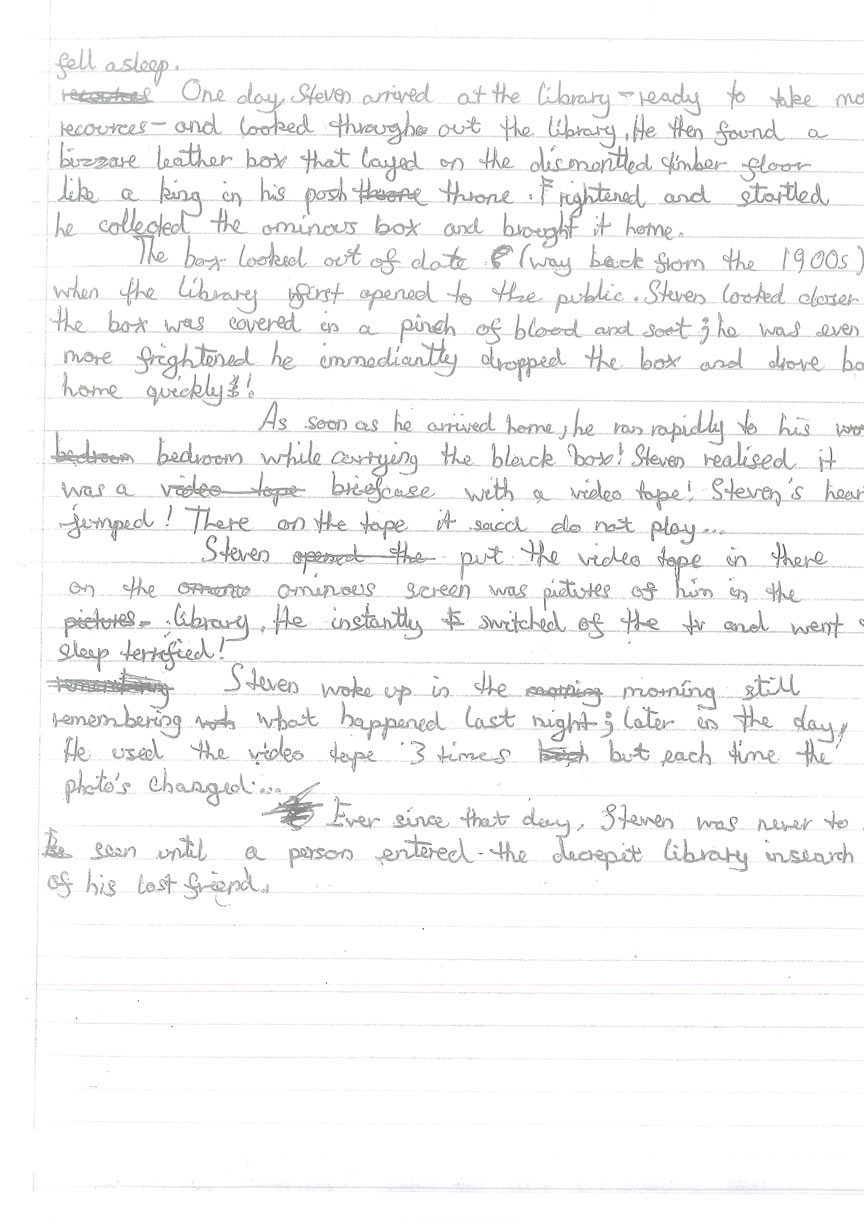 fell asleep.
One day, Steven arrived at the library - ready to take mo
recources - and looked through out the library. He then found a
bizzare leather box that layed on the dismontled timber floor
like a king in his posh throne. Frightened and startled
he collected the ominous box and brought it home.
The box looked out of date (way back from the 1900s)
when the library first opened to the public. Steven looked closer
the box was covered in a pinch of blood and soot; he was even
more frightened he immediantly dropped the box and drove ba
home quickly!
As soon as he arrived home, he ran rapidly to his
bedroom while carrying the black box! Steven realised it
was a briefcase with a video tape! Steven's hear
jumped! There on the tape it said do not play...
Steven put the video tape in there
on the ominous screen was pictures of him in the
library. He instantly switched of the tv and went
sleep terrified!
Steven woke up in the morning still
remembering what happened last night; later in the day,
He used the video tape 3 times but each time the
photo's changed...
Ever since that day, Steven was never to
be seen until a person entered the decrepit library insearch
of his lost friend.